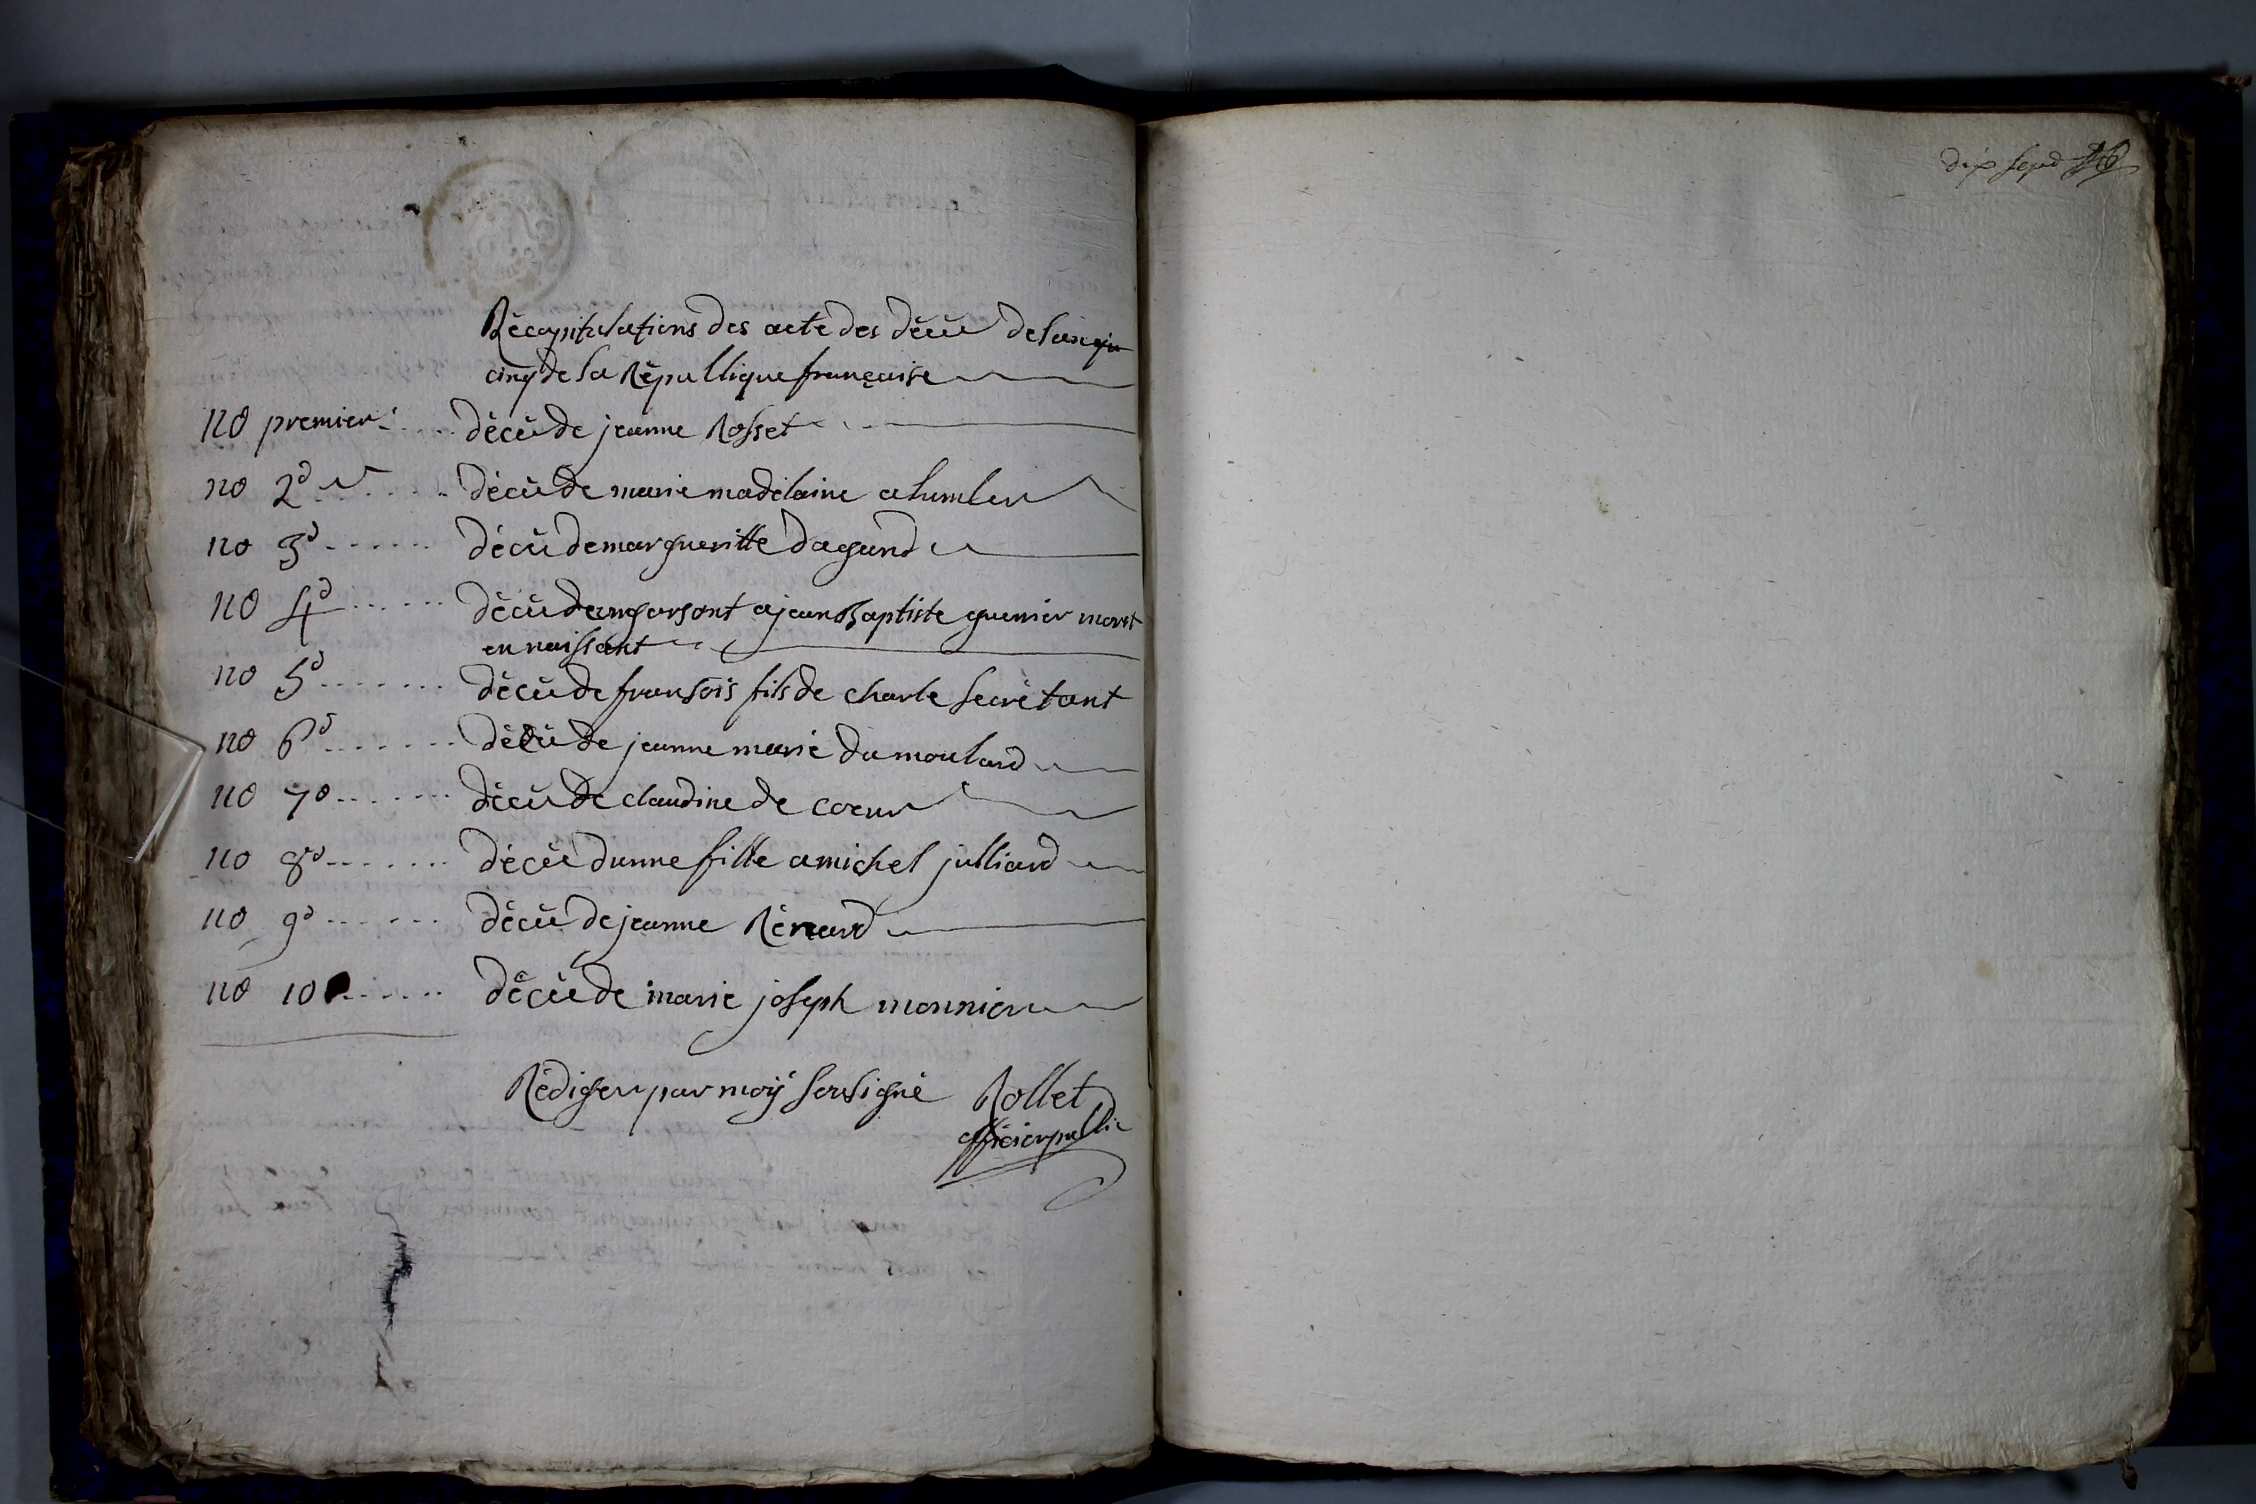 Récapitulations des acte des décè de lan
cinq de la Républlique française
no premier décè de jeanne Rosset
no 2d décè de marie madelaine alumler
no 3d décè de margueritte dagand
no 4d décè dun garsont a jean Baptiste guerrier mort
en naissant
no 5d décè de fransois fils de charle secrétant
no 6d décè de jeanne marie du moulard
no 7o décè de claudine de coeur
no 8o décè dunne fille a michel julliard
no 9o décè de jeanne Rénard
no 10 décè de marie joseph monnier
Rédiger par moÿ sousigné Rollet
officier public
dix sept